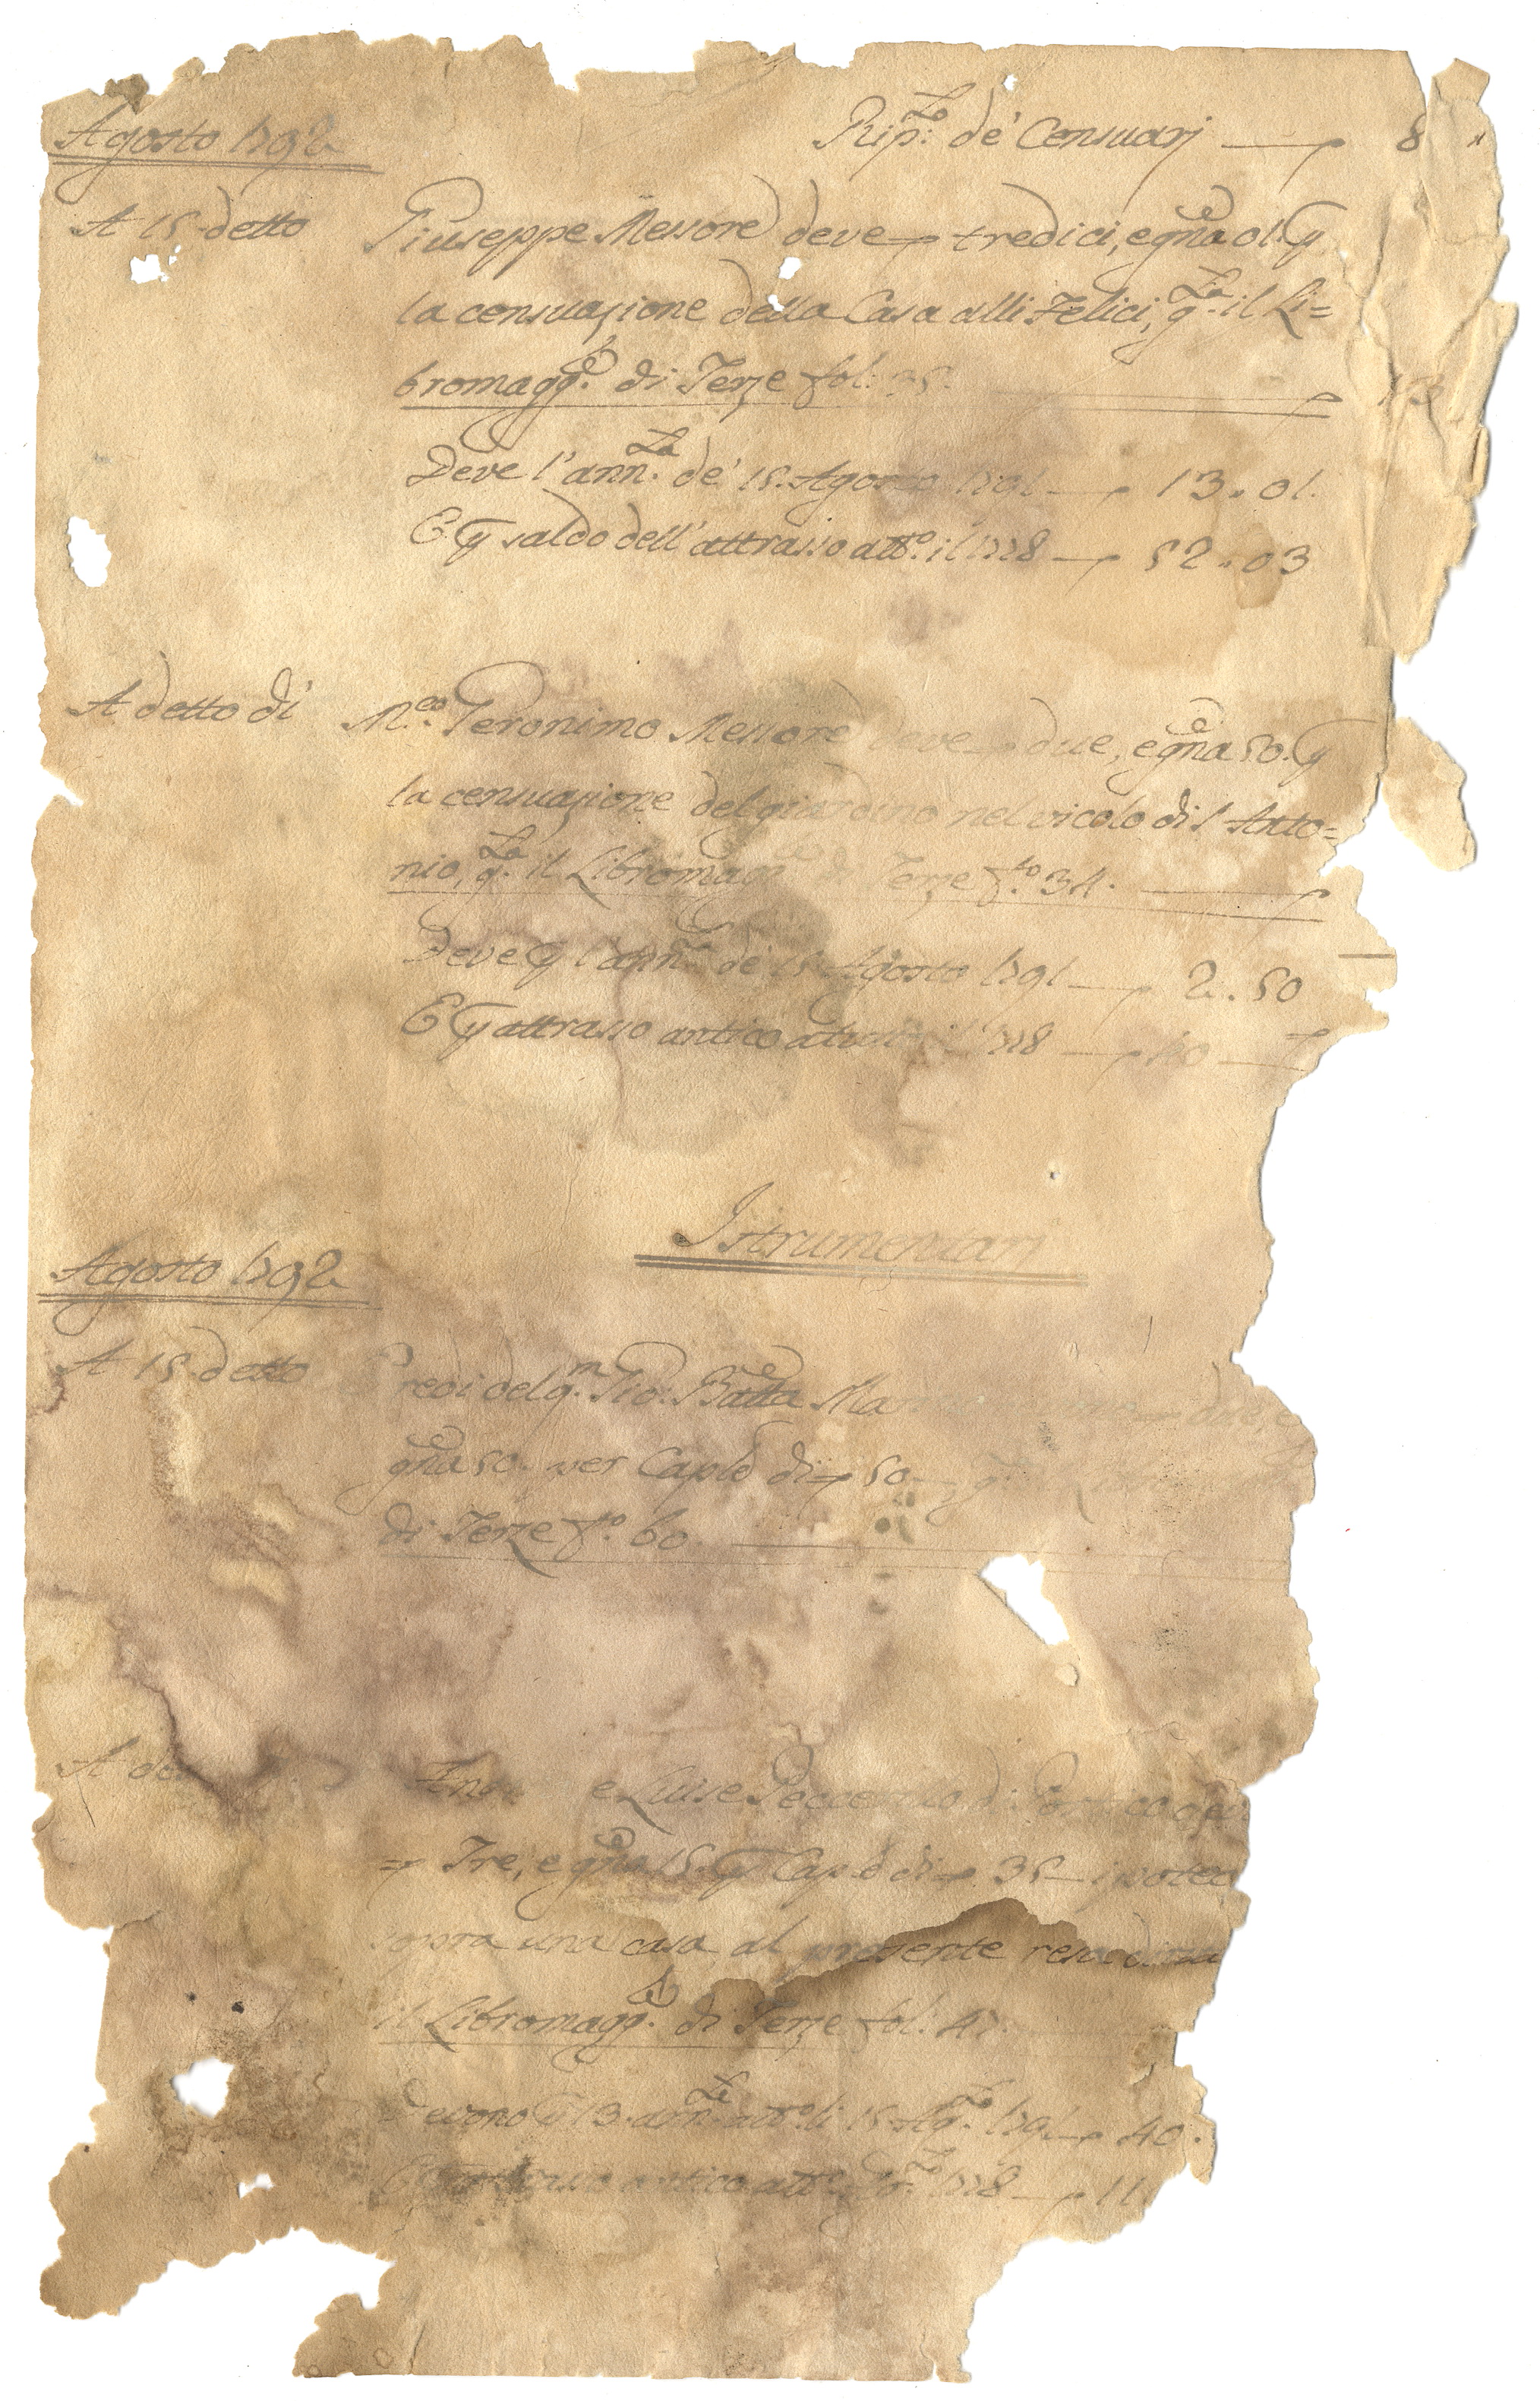 Agosto 1792
Rip.to de' Censuarj — 8
A 15 detto Giuseppe Messore deve tredici, e gna 01. p
la censuazione della Casa alli Felici, q.ta il Li=
bromagg.e di Terze fol: 35.
Deve l'ann.ta de' 15. Agosto 1791 — 13.01.
E p saldo dell'attrasso att.o il 1778 — 52.03
A detto di M.co Geronimo Messore deve due, e gna 50. p
la censuazione del giardino nel vicolo di S. Anto=
nio, q.ta il Libromagg Terze f.to 34.
Deve p l'ann.ta de' 15 Agosto 1791 — 2.50
E p attrasso antico 1778 — 40 —
Istrumentarj
Agosto 1792
A 15 detto Eredi del q.m Gio: Batta Mar due, e
gna 50. per Caple di 50
di Terze f.to 60
A de e Luise
Tre, e gna 15. p Caple di 35 — ipotec
sopra una casa al presente
il Libromagg.e di Terze fol: 41
Devono p 13. ann.te att.o li 15 Ag.to 1791 — 40.
antico att.o 1778 — 11